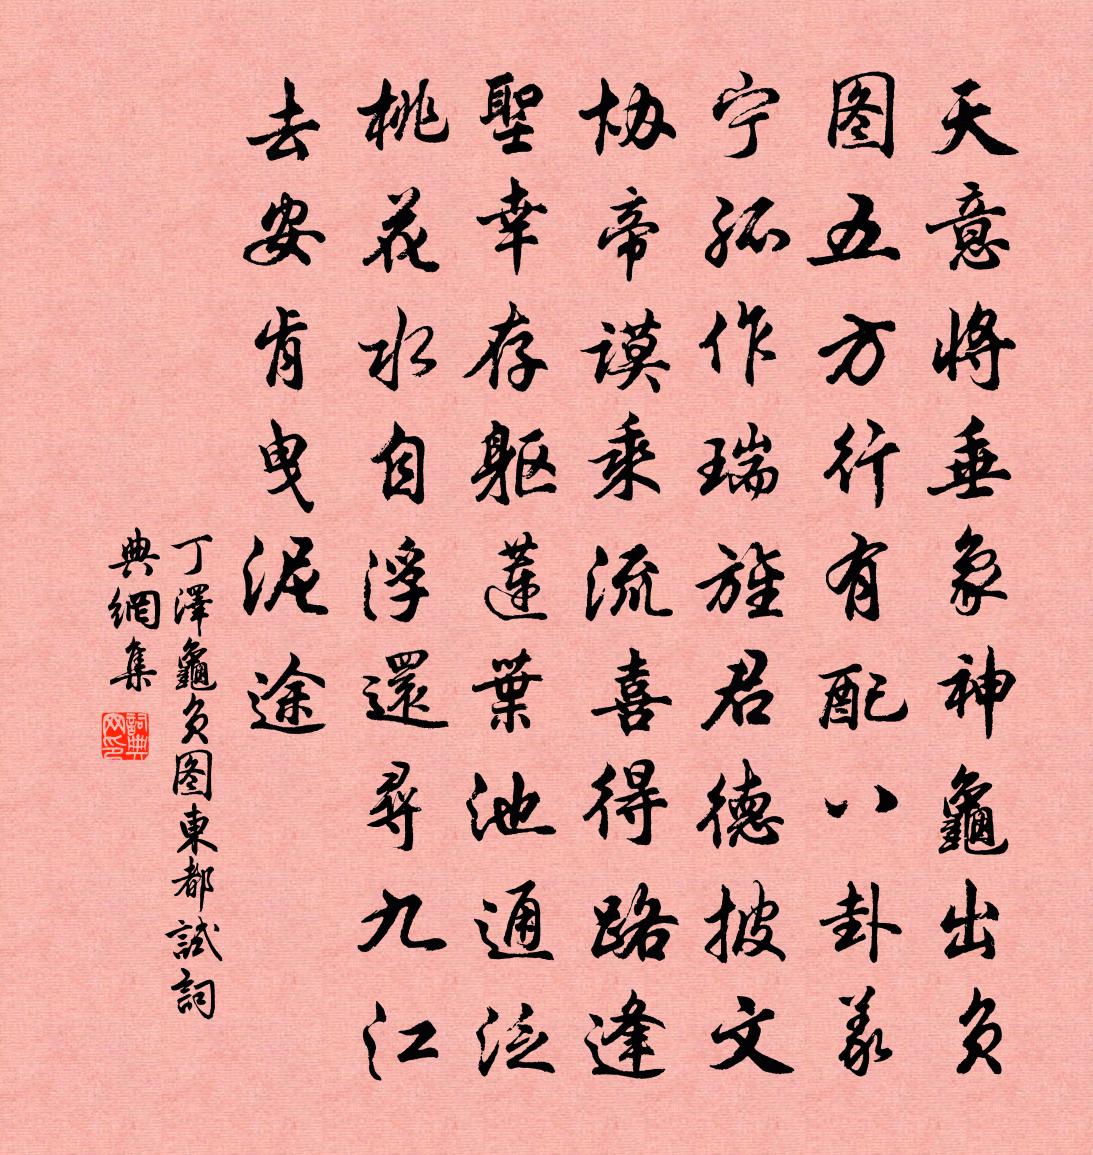 天意將垂象神龜出负
图五方行有配八卦義
宁孤作瑞旌君德披文
协帝謨乘流喜得路逢
聖幸存躯蓮葉池通泛
桃花水自浮還尋九江
去安肯曳泥途
丁澤龜负图東都試詞
典網集
詞典网印